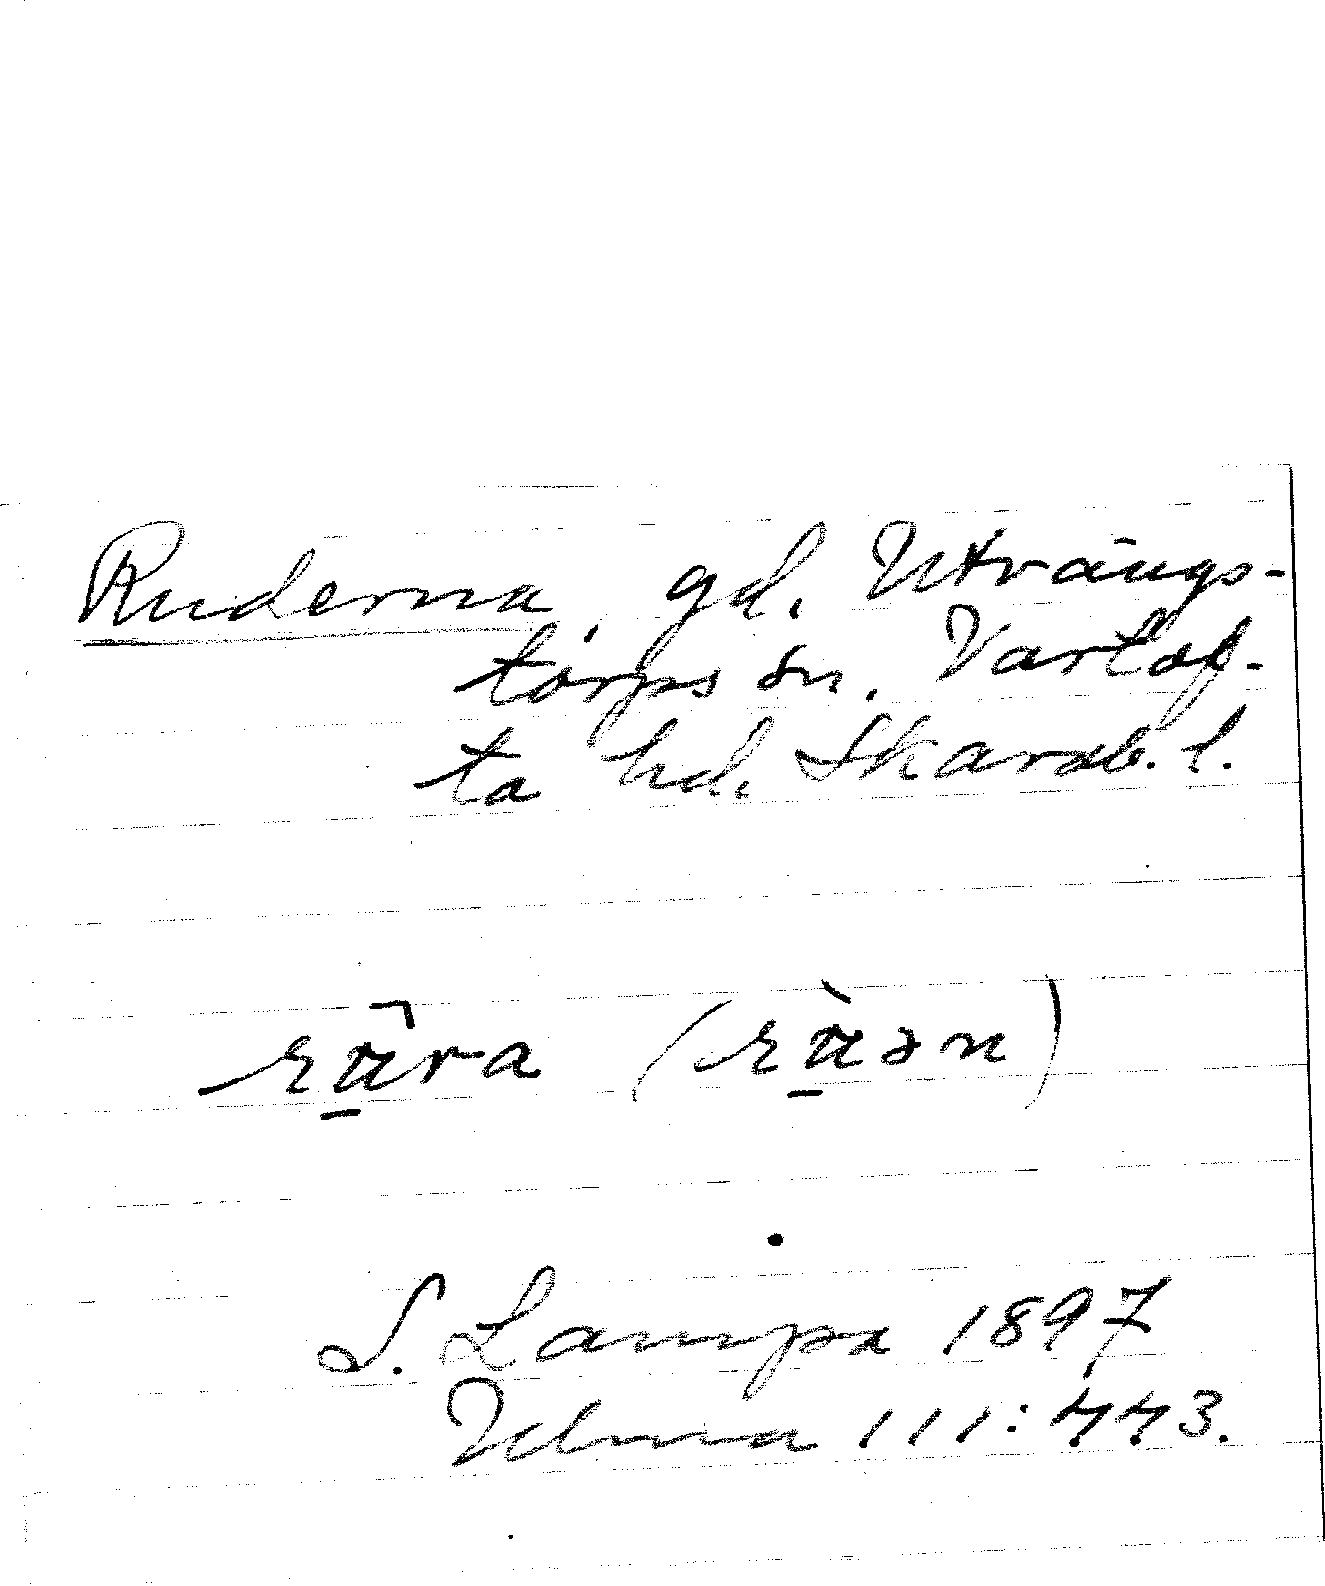 Ruderna, gd. Utvängs-
torps sn. Vartof-
ta hd. Skarab. l.
ra (ən)
S. Lampa 1897
Ulma 111:443.